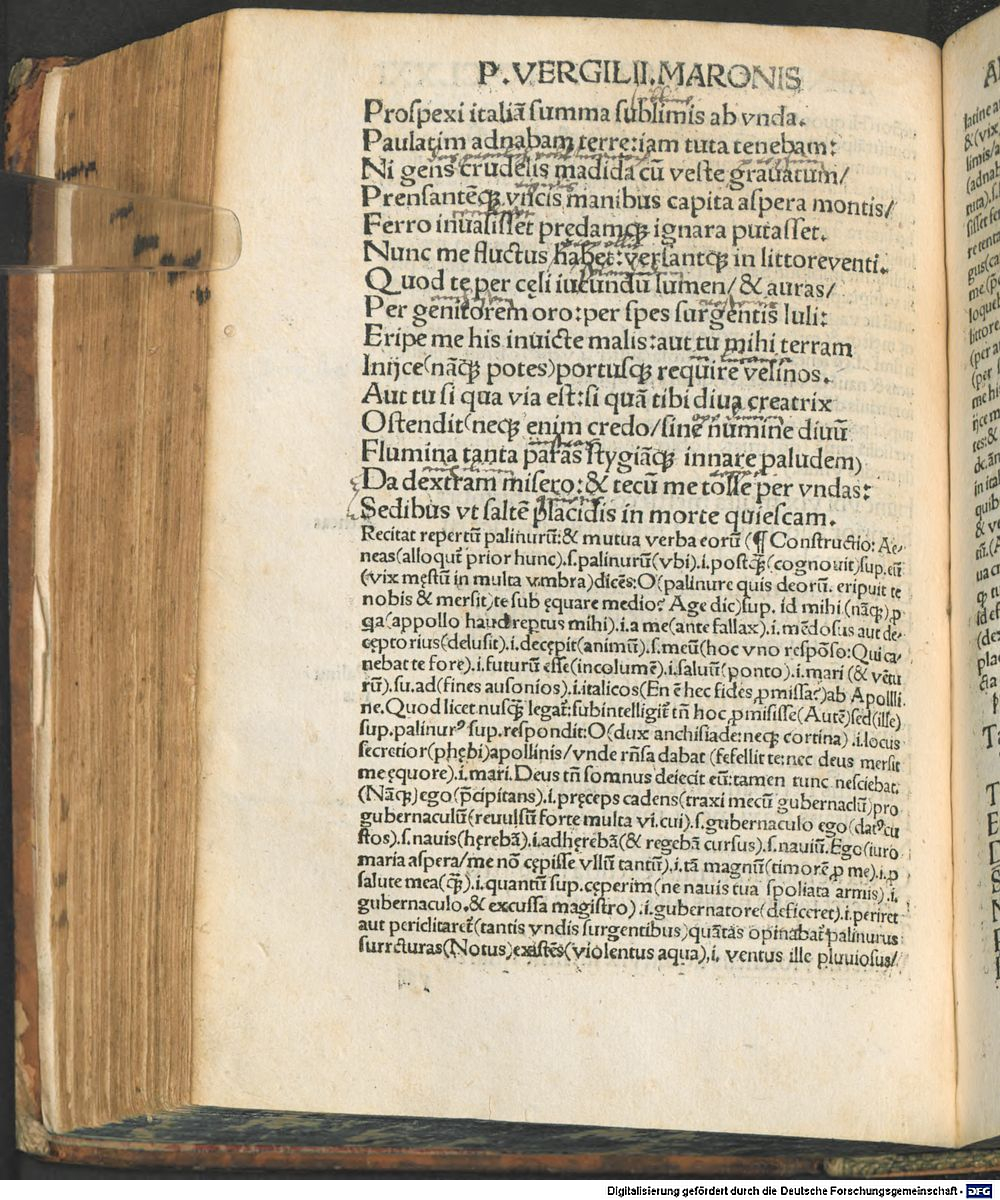 P. VERGILII. MARONIS
Proſpexi italiā ſumma ſublimis ab vnda.
Paulatim adnabam terre:iam tuta tenebam:
Ni gens crudelis madida cū veſte grauatum/
Prenſantēqꝫ vncis manibus capita aſpera montis/
Ferro inuaſiſſet predamqꝫ ignara putaſſet.
Nunc me fluctus habet:verſantqꝫ in littoreventi.
Quod te per cęli iucundū lumen/& auras/
Per genitorem oro:per ſpes ſurgentis Iuli:
Eripe me his inuicte malis:aut tu mihi terram
Inijce(nāqꝫ potes)portuſqꝫ require velinos.
Aut tu ſi qua via eſt:ſi quā tibi diua creatrix
Oſtendit(neqꝫ enim credo/ſine numine diuū
Flumina tanta paras ſtygiāqꝫ innare paludem)
Da dextram miſero:& tecū me tolle per vndas:
Sedibus vt ſaltē placidis in morte quieſcam.
Recitat repertū palinurū:& mutua verba eorū (¶ Conſtructio: Ae-
neas(alloquit᷑ prior hunc).ſ.palinurū(vbi).i.poſtqꝫ̄(cognouit)ſup.eū
(vix męſtū in multa vmbra)dicēs:O(palinure quis deorū. eripuit te
nobis & merſit)te ſub ęquare medio? Age dic)ſup. id mihi (nāqꝫ)ꝓ
qa(appollo haud reptus mihi).i.a me(ante fallax).i.mēdoſus aut de-
ceptorius(deluſit).i.decępit(animū).ſ.meū(hoc vno reſpōſo:Qui ca-
nebat te fore).i.futurū eſſe(incolumē).i.ſaluū(ponto).i.mari (& vētu
rū).ſu.ad(fines auſonios).i.italicos(En ē hec fides ꝓmiſſa?)ab Apolli
ne.Quod licet nuſqꝫ̄ legat᷑:ſubintelligit᷑ tn̄ hoc ꝓmiſiſſe(Autē)ſed(ille)
ſup.palinurꝰ ſup.reſpondit:O(dux anchiſiade:neqꝫ cortina) .i.locus
ſecretior(phębi)apollinis/vnde rn̄ſa dabat (fefellit te:nec deus merſit
me ęquore).i.mari.Deus tn̄ ſomnus deiecit eū:tamen tunc neſciebat.
(Nāqꝫ)ego(p̄cipitans).i.pręceps cadens(traxi mecū gubernaclū)pro
gubernaculū(reuulſū forte multa vi.cui).ſ.gubernaculo ego(datꝰcu
ſtos).ſ.nauis(hęrebā).i.adhęrebā(& regebā curſus).ſ.nauiū.Ego(iuro
maria aſpera/me nō cępiſſe vllū tantū).i.tā magnū(timorē ꝓ me).i.ꝓ
ſalute mea(qꝫ̄).i.quantū ſup.cęperim(ne nauis tua ſpoliata armis).i.
gubernaculo.& excuſſa magiſtro).i.gubernatore(deficeret).i.periret
aut periclitaret᷑(tantis vndis ſurgentibus)quātas opinabat᷑ palinurus
ſurrcturas(Notus)exiſtēs(violentus aqua).i. ventus ille pluuioſus/
Digitalisierung gefördert durch die Deutsche Forschungsgemeinschaft - DFG